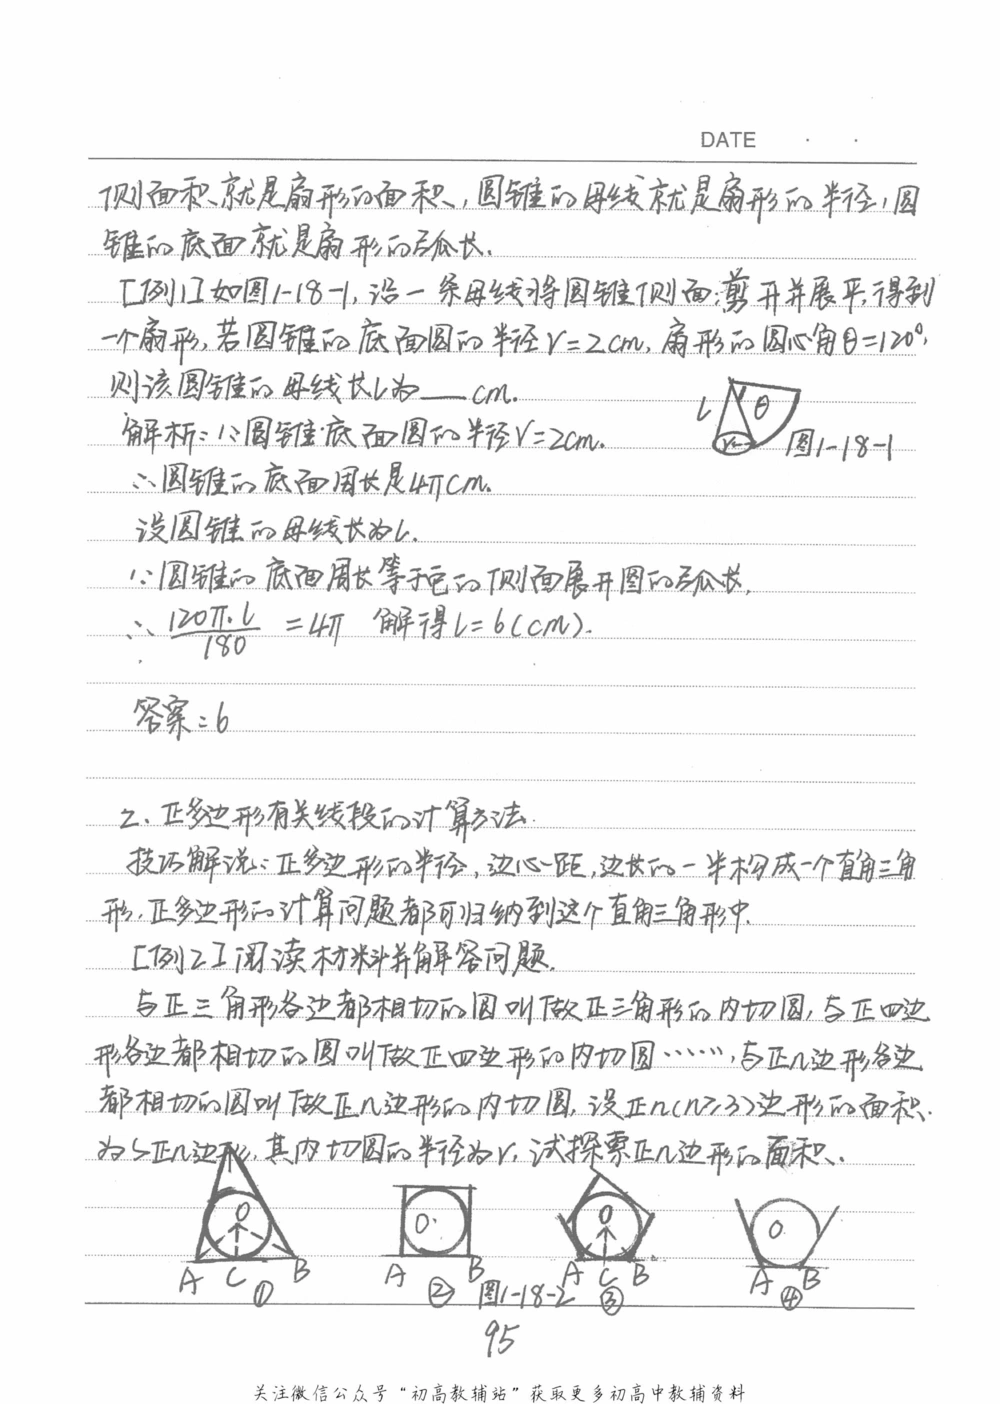 DATE · ·
侧面积就是扇形的面积,圆锥的母线就是扇形的半径,圆
锥的底面就是扇形的弧长.
[例1]如图1-18-1,沿一条母线将圆锥侧面剪开并展平,得到
一个扇形,若圆锥的底面圆的半径r=2cm,扇形的圆心角θ=120°,
则该圆锥的母线长l为___cm.
l θ r
图1-18-1
解析:∵圆锥底面圆的半径r=2cm.
∴圆锥的底面周长是4πcm.
设圆锥的母线长为l.
∵圆锥的底面周长等于它的侧面展开图的弧长,
∴ 120π·l/180 =4π 解得l=6(cm).
答案:6
2、正多边形有关线段的计算方法.
技巧解说:正多边形的半径,边心距,边长的一半构成一个直角三角
形,正多边形的计算问题都可归纳到这个直角三角形中.
[例2]阅读材料并解答问题.
与正三角形各边都相切的圆叫做正三角形的内切圆,与正四边
形各边都相切的圆叫做正四边形的内切圆……,与正n边形各边
都相切的圆叫做正n边形的内切圆,设正n(n≥3)边形的面积
为S正n边形,其内切圆的半径为r,试探索正n边形的面积.
O O O O
A C B A B A C B A B
① ② 图1-18-2 ③ ④
95
关注微信公众号“初高教辅站”获取更多初高中教辅资料